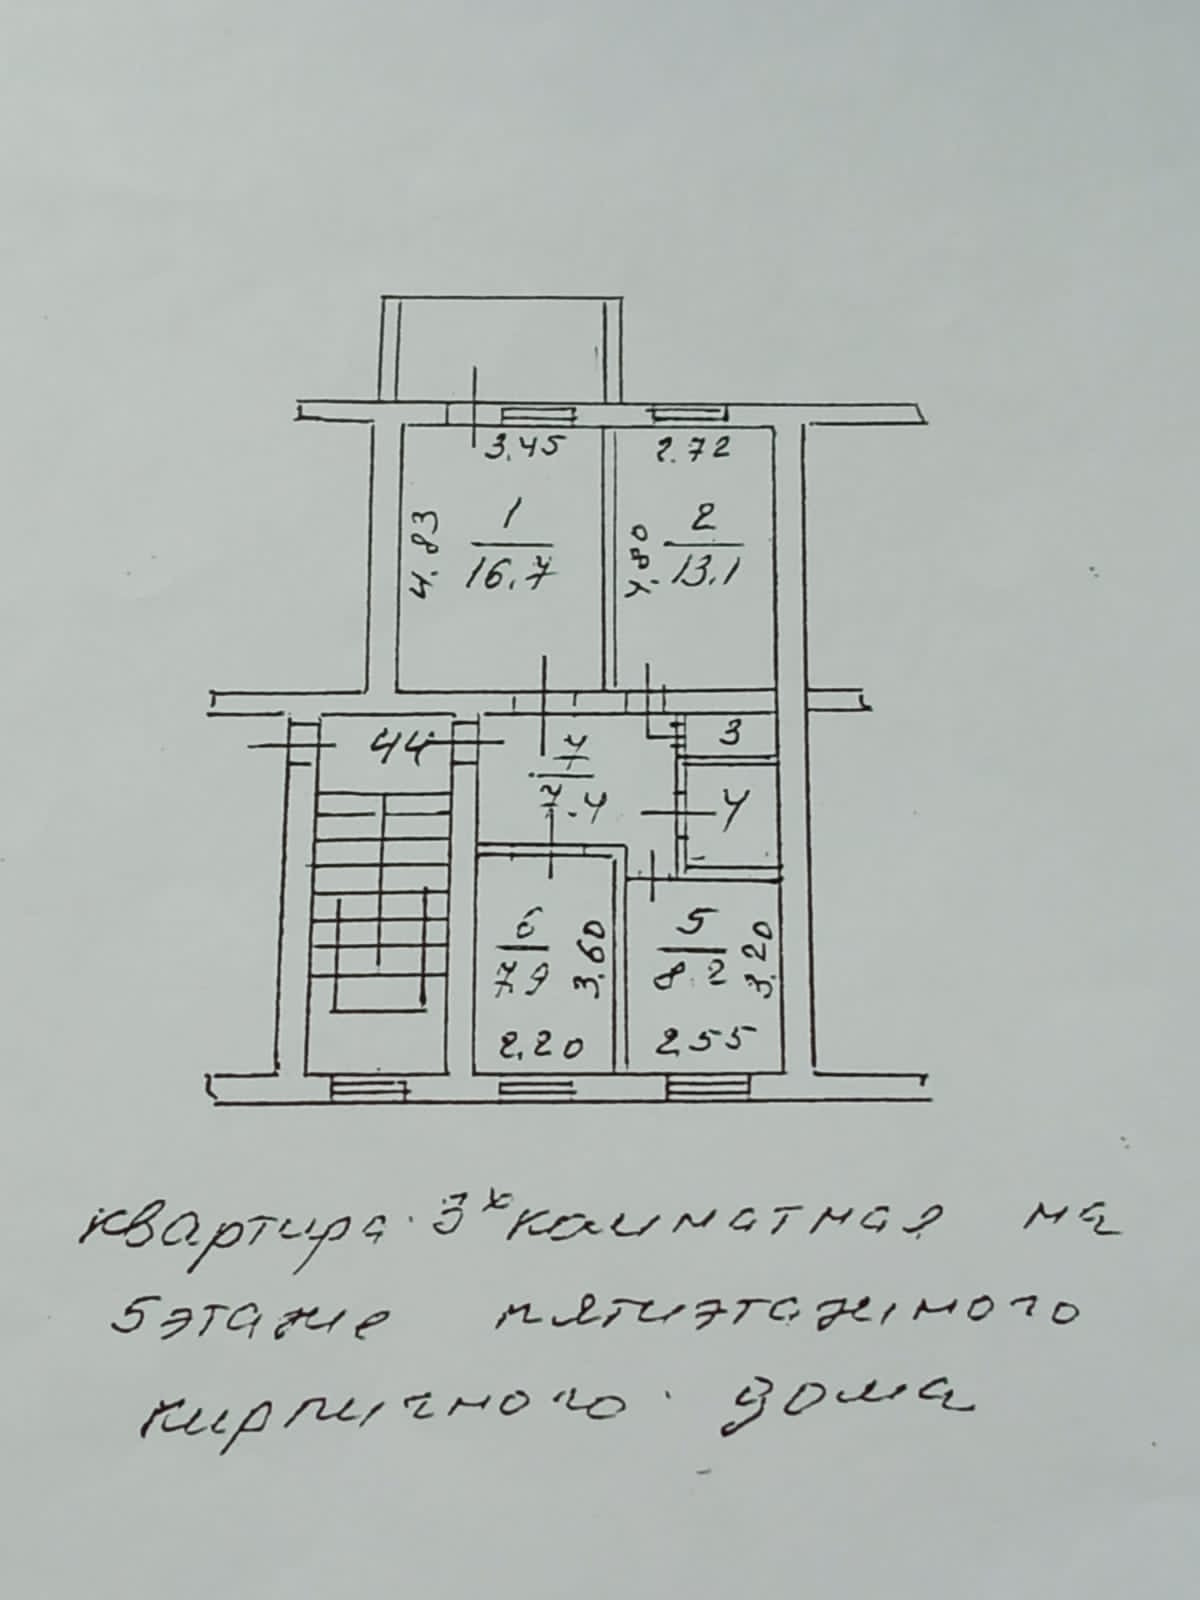 3.45 2.72
4.83 1 4.80 2
16.7 13.1
44 7 3
7.4 4
6 3.60 5 3.20
7.9 8.2
2.20 2.55
квартира 3х комнатная на
5 этаже пятиэтажного
кирпичного дома